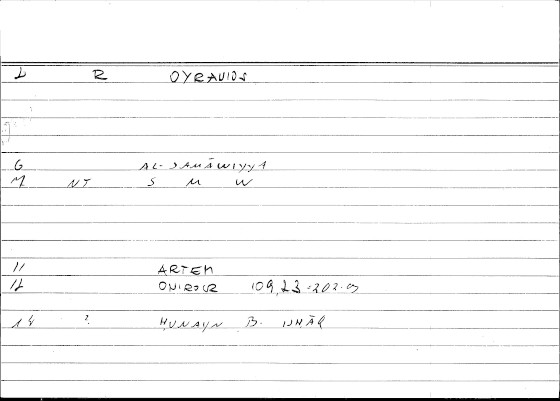 1 R OYRANIOS
6 AL-SAMĀWIYYA
7 NT S M W
11 ARTEM
12 ONIROCR 109,23
14 ? ḤUNAYN B. ISḤĀQ